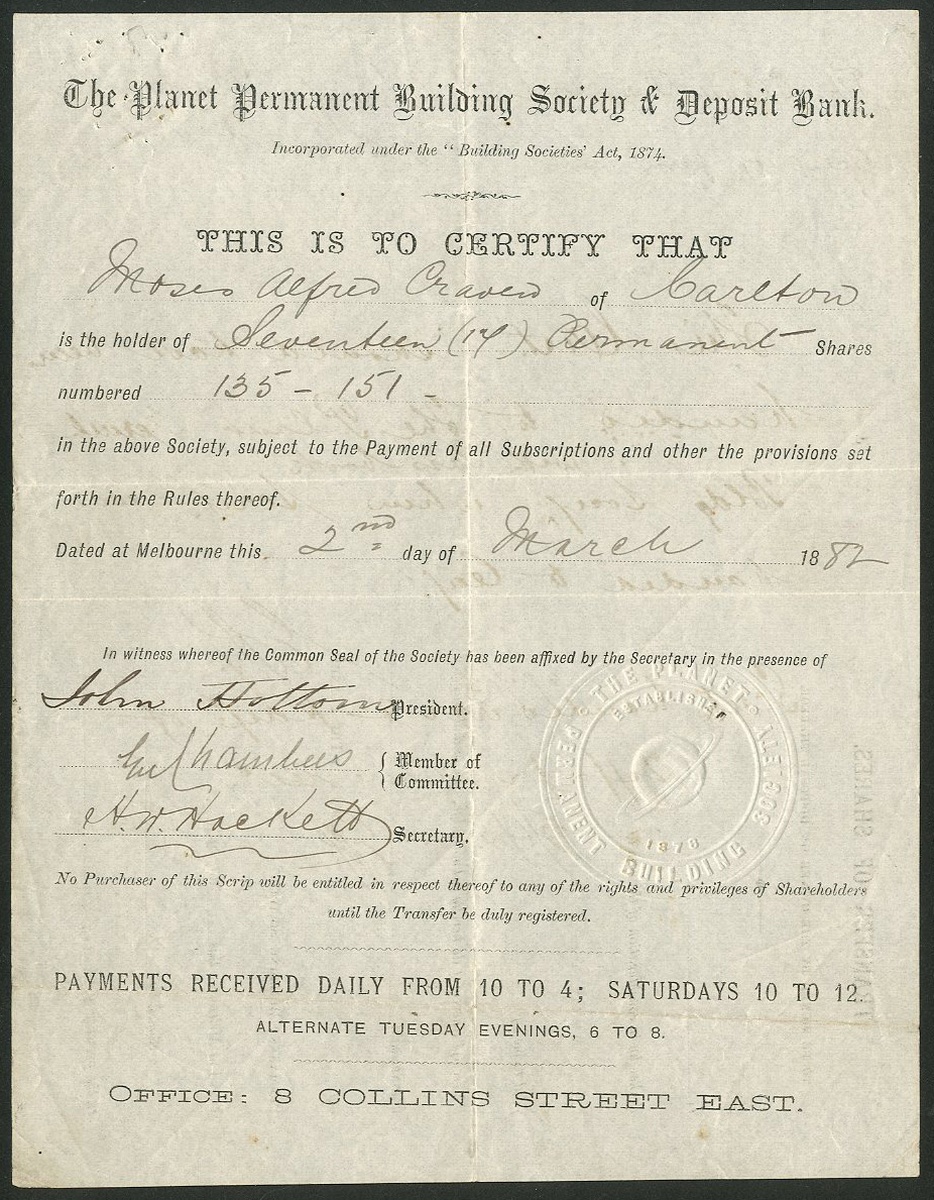 The Planet Permanent Building Society & Deposit Bank.
Incorporated under the "Building Societies' Act, 1874.
THIS IS TO CERTIFY THAT
Moses Alfred Craven of Carlton
is the holder of Seventeen (17) Permanent Shares
numbered 135 - 151 -
in the above Society, subject to the Payment of all Subscriptions and other the provisions set
forth in the Rules thereof.
Dated at Melbourne this 2nd day of March 1882
In witness whereof the Common Seal of the Society has been affixed by the Secretary in the presence of
John Hottom President.
Chambers { Member of
{ Committee.
H.W. Hackett Secretary.
THE PLANET PERMANENT BUILDING SOCIETY
ESTABLISHED
1878
No Purchaser of this Scrip will be entitled in respect thereof to any of the rights and privileges of Shareholders
until the Transfer be duly registered.
PAYMENTS RECEIVED DAILY FROM 10 TO 4; SATURDAYS 10 TO 12.
ALTERNATE TUESDAY EVENINGS, 6 TO 8.
OFFICE: 8 COLLINS STREET EAST.
TRANSFER OF SHARES.